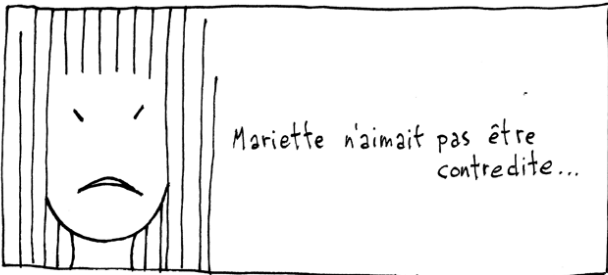 Mariette n'aimait pas être
contredite...